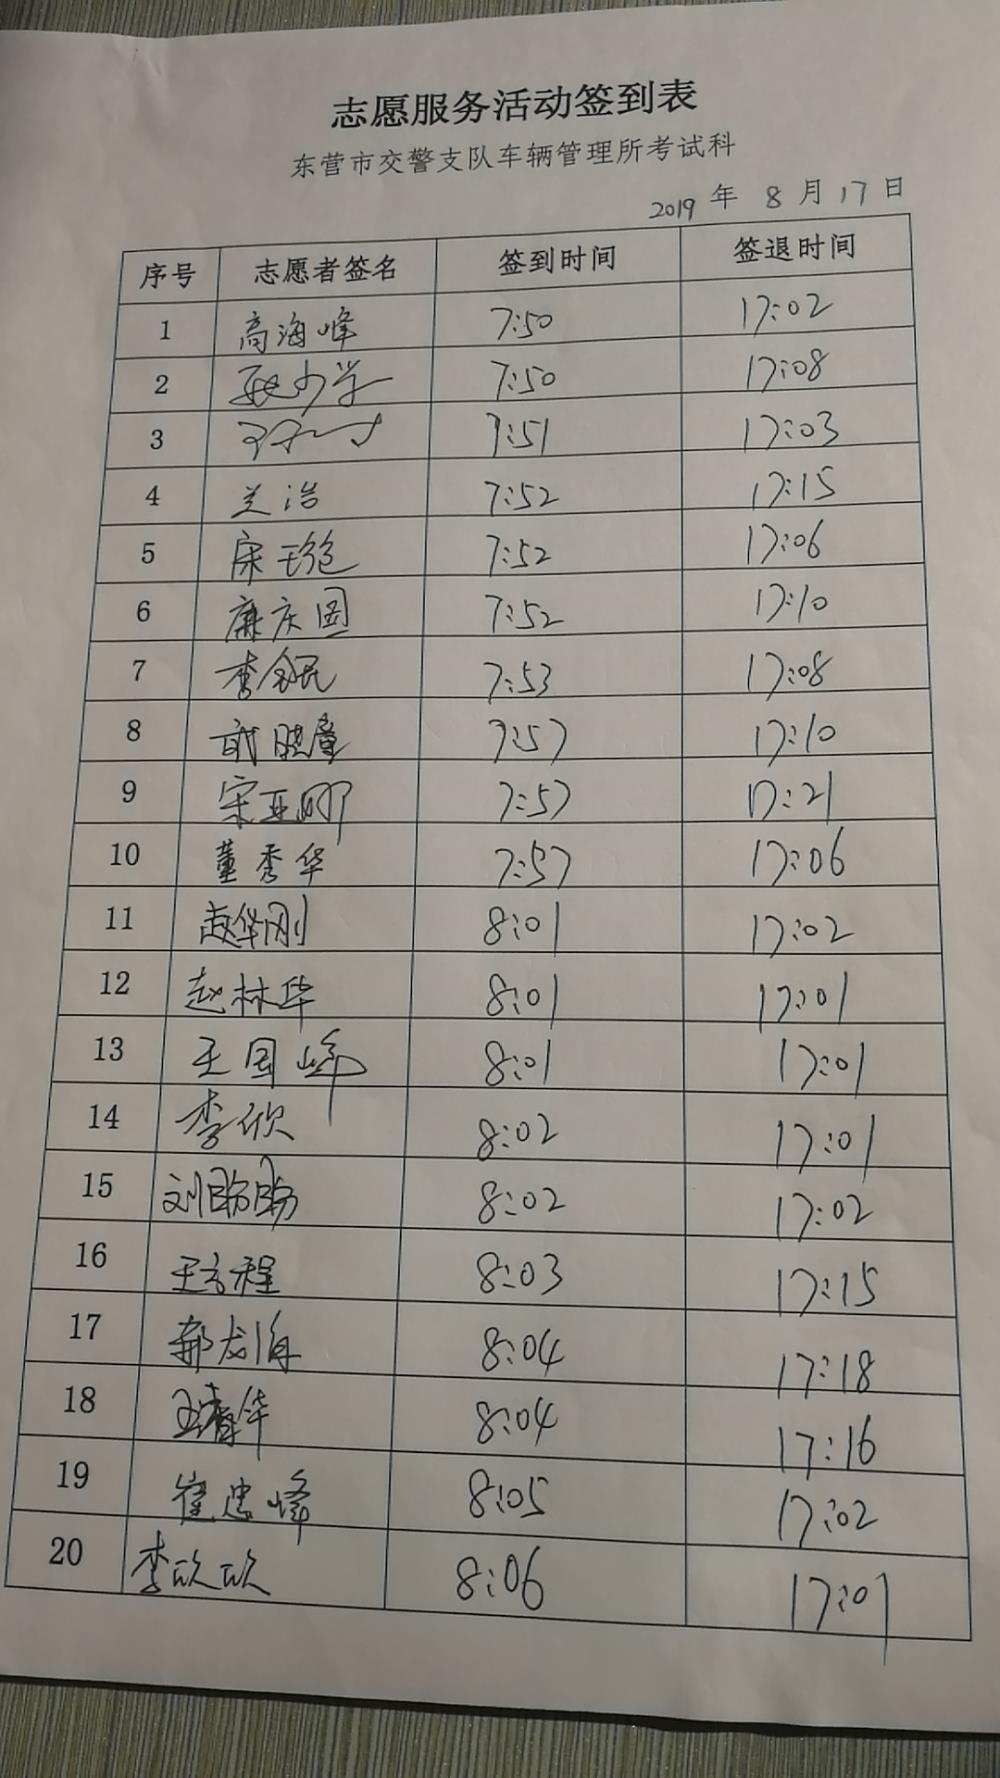 志愿服务活动签到表
东营市交警支队车辆管理所考试科
2019 年 8 月 17 日
序号 志愿者签名 签到时间 签退时间
1 高海峰 7:50 17:02
2 7:50 17:08
3 7:51 17:03
4 兰浩 7:52 17:15
5 7:52 17:06
6 廉庆国 7:52 17:10
7 7:53 17:08
8 7:57 17:10
9 宋亚娜 7:57 17:21
10 董秀华 7:57 17:06
11 赵华刚 8:01 17:02
12 赵林华 8:01 17:01
13 王国峰 8:01 17:01
14 李欣 8:02 17:01
15 刘盼盼 8:02 17:02
16 8:03 17:15
17 郝龙海 8:04 17:18
18 8:04 17:16
19 崔忠峰 8:05 17:02
20 李欣欣 8:06 17:01